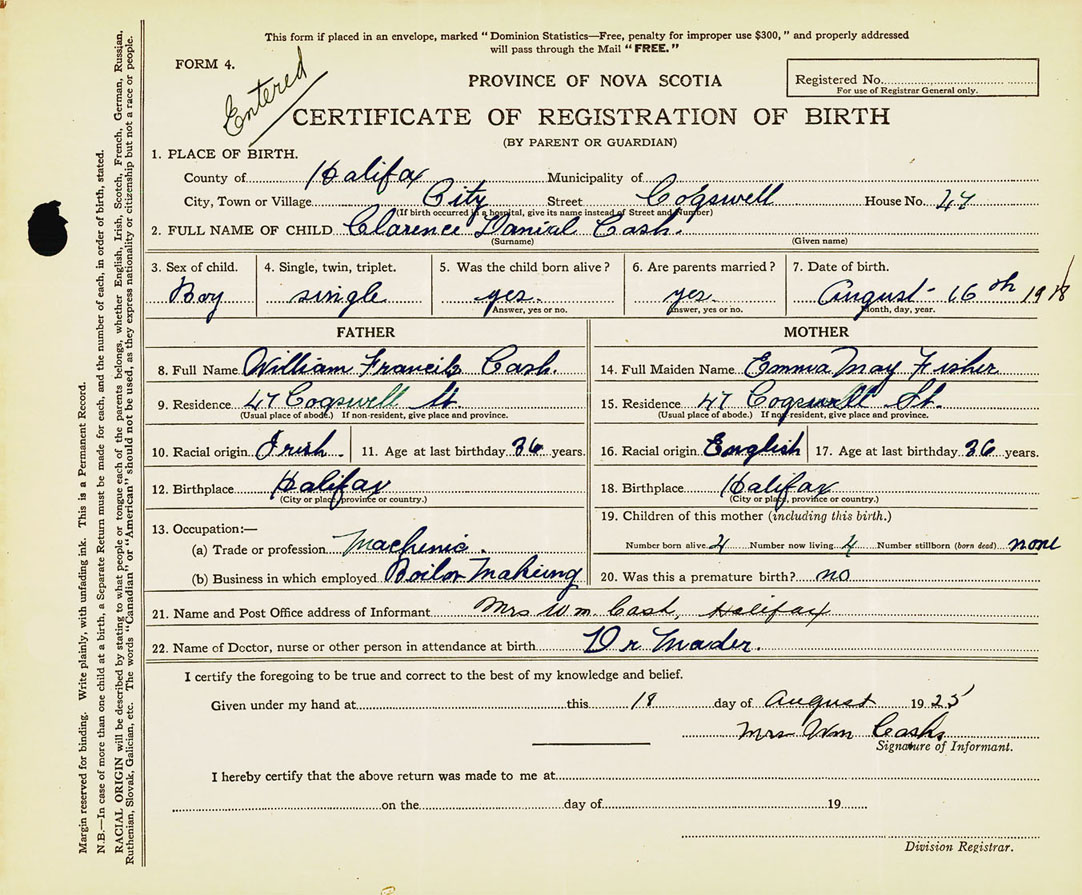 This form if placed in an envelope, marked "Dominion Statistics—Free, penalty for improper use $300," and properly addressed
will pass through the Mail "FREE."
FORM 4.
Entered
PROVINCE OF NOVA SCOTIA
Registered No.
For use of Registrar General only.
CERTIFICATE OF REGISTRATION OF BIRTH
(BY PARENT OR GUARDIAN)
1. PLACE OF BIRTH.
County of Halifax Municipality of
City, Town or Village City Street Cogswell House No. 47
(If birth occurred in a hospital, give its name instead of Street and Number)
2. FULL NAME OF CHILD Clarence Danial Cash.
(Surname) (Given name)
3. Sex of child. 4. Single, twin, triplet. 5. Was the child born alive? 6. Are parents married? 7. Date of birth.
Boy single yes. yes. August 16th 1918
Answer, yes or no. Answer, yes or no. Month, day, year.
FATHER MOTHER
8. Full Name William Francis Cash. 14. Full Maiden Name Emma May Fisher
9. Residence 47 Cogswell St 15. Residence 47 Cogswell St.
(Usual place of abode.) If non-resident, give place and province. (Usual place of abode.) If not resident, give place and province.
10. Racial origin Irish. 11. Age at last birthday 36 years. 16. Racial origin English 17. Age at last birthday 36 years.
12. Birthplace Halifax 18. Birthplace Halifax
(City or place, province or country.) (City or place, province or country.)
13. Occupation:— 19. Children of this mother (including this birth.)
(a) Trade or profession Machenic. Number born alive 4 Number now living 4 Number stillborn (born dead) none
(b) Business in which employed Boilor Makiung 20. Was this a premature birth? no
21. Name and Post Office address of Informant Mrs Wm. Cash, Halifax
22. Name of Doctor, nurse or other person in attendance at birth Dr Mader.
I certify the foregoing to be true and correct to the best of my knowledge and belief.
Given under my hand at this 18 day of August 1925
Mrs Wm Cash
Signature of Informant.
I hereby certify that the above return was made to me at
on the day of 19
Division Registrar.
Margin reserved for binding. Write plainly, with unfading ink. This is a Permanent Record.
N.B.—In case of more than one child at a birth, a Separate Return must be made for each, and the number of each, in order of birth, stated.
RACIAL ORIGIN will be described by stating to what people or tongue each of the parents belongs, whether English, Irish, Scotch, French, German, Russian,
Ruthenian, Slovak, Galician, etc. The words "Canadian" or "American" should not be used, as they express nationality or citizenship but not a race or people.